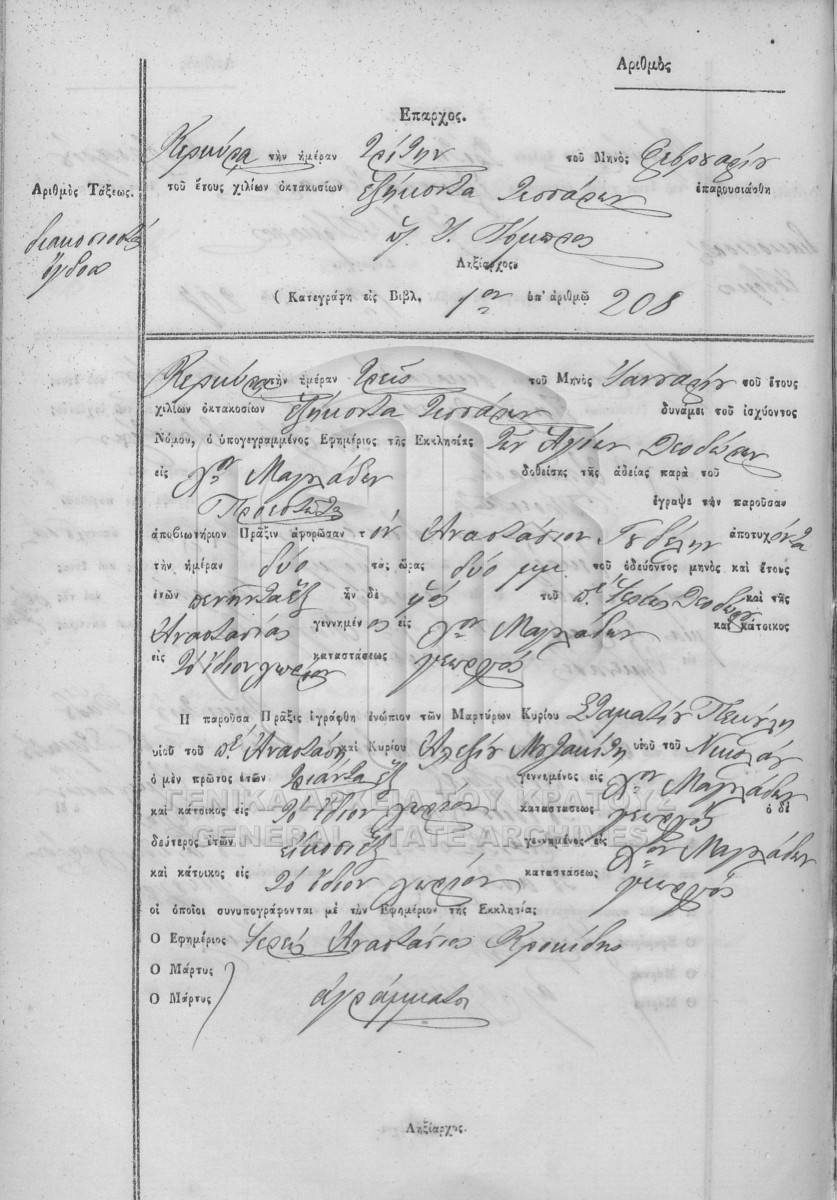 Αριθμὸς
Επαρχος.
Κερκύρα τὴν ἡμέραν τρίτην τοῦ Μηνὸς Φεβρουαρίου
Αριθμὸς Τάξεως.
τοῦ ἔτους χιλίων ὀκτακοσίων ἑξήκοντα τεσσάρων ἐπαρουσιάσθη
διακοσιοστὴ
ὀγδόα
Ληξίαρχος
( Κατεγράφη εἰς Βιβλ. 1ον ὑπ' ἀριθμῷ 208
Κερκύρα τὴν ἡμέραν τρεῖς τοῦ Μηνὸς Ἰανναρίου τοῦ ἔτους
χιλίων ὀκτακοσίων ἑξήκοντα τεσσάρων δυνάμει τοῦ ἰσχύοντος
Νόμου, ὁ ὑπογεγραμμένος Εφημέριος τῆς Εκκλησίας τῶν Ἁγίων Θεοδώρων
εἰς χον Μαγλάδων δοθείσης τῆς ἀδείας παρὰ τοῦ
Προεστῶτος ἔγραψε τὴν παροῦσαν
ἀποβιωτήριον Πρᾶξιν ἀφορῶσαν τὸν Ἀναστάσιον ἀποτυχόντα
τὴν ἡμέραν δύο τας ὥρας δύο μμ τοῦ ὁδεύοντος μηνὸς καὶ ἔτους
ἐτῶν πενῆνταἓξ ἦν δὲ υἱὸς τοῦ πε Θεοδώρου καὶ τῆς
Ἀναστασίας γεννημένος εἰς χον Μαγλάδων καὶ κάτοικος
εἰς τὸ ἴδιον χωρίον καταστάσεως γεωργός
Η παροῦσα Πρᾶξις ἐγράφθη ἐνώπιον τῶν Μαρτύρων Κυρίου Σταματίου
υἱοῦ τοῦ πε Ἀναστάση καὶ Κυρίου Ἀλεξίου υἱοῦ τοῦ Νικολάου
ὁ μὲν πρῶτος ἐτῶν τριάνταἓξ γεννημένος εἰς χον Μαγλάδων
καὶ κάτοικος εἰς τὸ ἴδιον χωρίον καταστάσεως γεωργός ὁ δὲ
δεύτερος ἐτῶν εἰκοσιἓξ γεννημένος εἰς χον Μαγλάδων
καὶ κάτοικος εἰς τὸ ἴδιον χωρίον καταστάσεως γεωργός
οἱ ὁποῖοι συνυπογράφονται μὲ τὸν Εφημέριον τῆς Εκκλησίας
Ο Εφημέριος Ἱερεύς Ἀναστάσιος Κροκίδης
Ο Μάρτυς
Ο Μάρτυς ἀγράμματοι
Ληξίαρχος.
ΓΕΝΙΚΑ ΑΡΧΕΙΑ ΤΟΥ ΚΡΑΤΟΥΣ
GENERAL STATE ARCHIVES